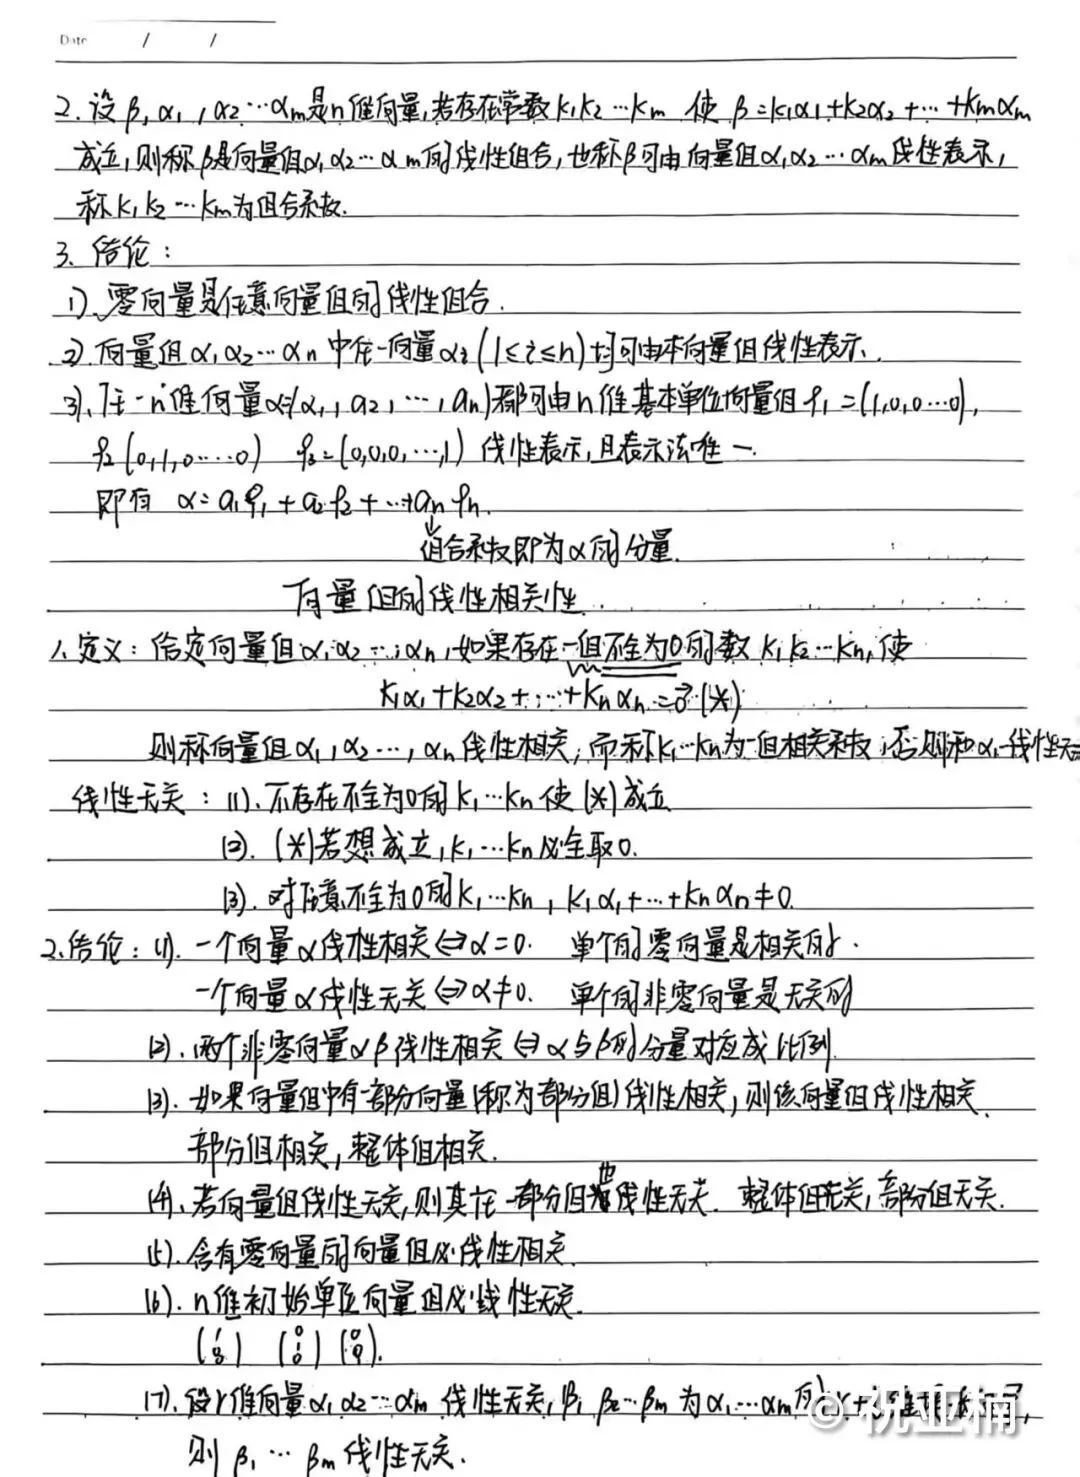 Date / /
2. 设β,α₁,α₂…αm是n维向量,若存在常数k₁k₂…km 使 β=k₁α₁+k₂α₂+…+kmαm
成立,则称β是向量组α₁α₂…αm的线性组合,也称β可由向量组α₁α₂…αm线性表示,
称k₁k₂…km为组合系数.
3. 结论:
1). 零向量是任意向量组的线性组合.
2). 向量组α₁α₂…αn中任一向量αi(1≤i≤n)均可由本向量组线性表示.
3). 任一n维向量α=(α₁,a₂,…,an)都可由n维基本单位向量组 =(1,0,0…0),
(0,1,0……0) =(0,0,0,…,1) 线性表示,且表示法唯一.
即有 α=
组合系数即为α的分量.
向量组的线性相关性
1. 定义: 给定向量组α₁α₂…,αn,如果存在一组不全为0的数k₁k₂…kn,使
k₁α₁+k₂α₂+…+knαn=0⃗(*)
则称向量组α₁,α₂…,αn线性相关,而称k₁…kn为一组相关系数;否则称α₁…线性无关
线性无关: (1). 不存在不全为0的k₁…kn使(*)成立
(2). (*)若想成立,k₁…kn必全取0.
(3). 对任意不全为0的k₁…kn,k₁α₁+…+knαn≠0.
2. 结论: (1). 一个向量α线性相关⇔α=0. 单个的零向量是相关的.
一个向量α线性无关⇔α≠0. 单个的非零向量是无关的
(2). 两个非零向量αβ线性相关⇔α与β的分量对应成比例.
(3). 如果向量组中有一部分向量(称为部分组)线性相关,则该向量组线性相关.
部分组相关,整体组相关.
(4). 若向量组线性无关,则其任一部分组也线性无关. 整体组无关,部分组无关.
(5). 含有零向量的向量组必线性相关.
(6). n维初始单位向量组必线性无关.
(7). 设r维向量α₁α₂…αm线性无关,β₁β₂…βm为α₁…αm的
则β₁…βm线性无关.
© 祝亚楠